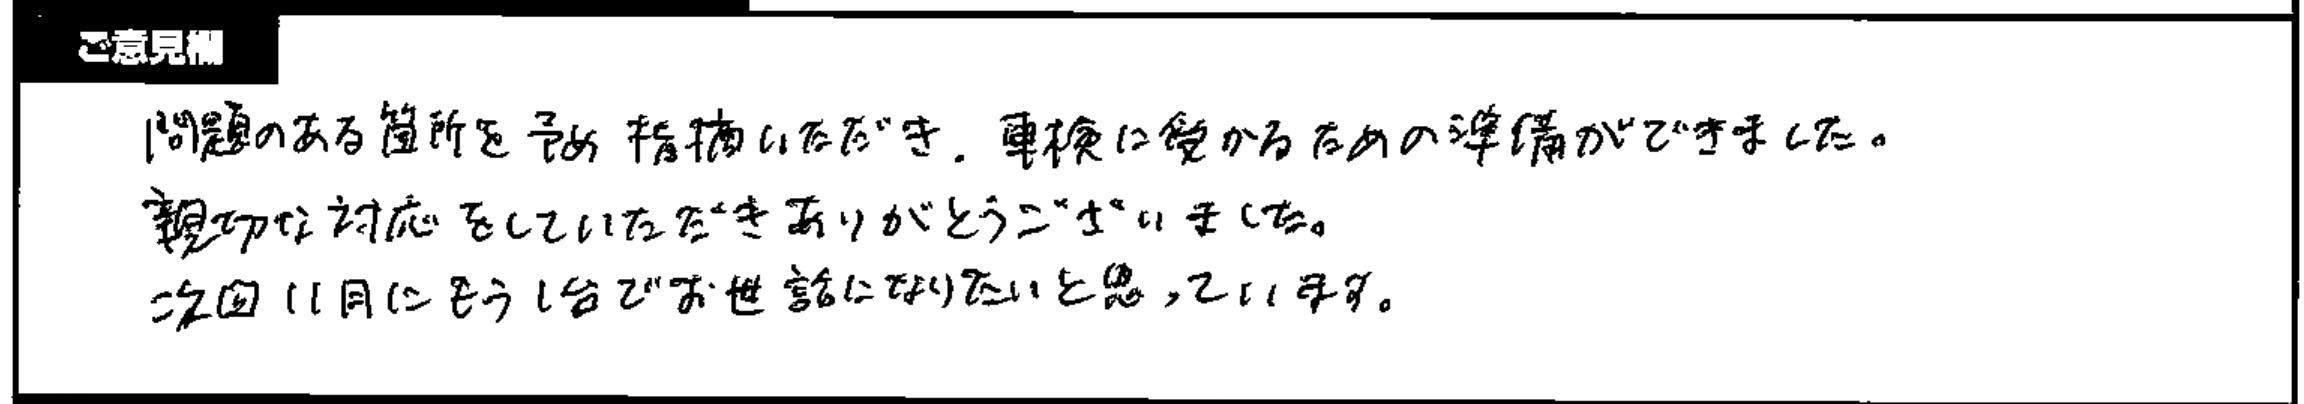 ご意見欄
問題のある箇所を予め指摘いただき、車検に受かるための準備ができました。
親切な対応をしていただきありがとうございました。
次回11月にもう1台でお世話になりたいと思っています。